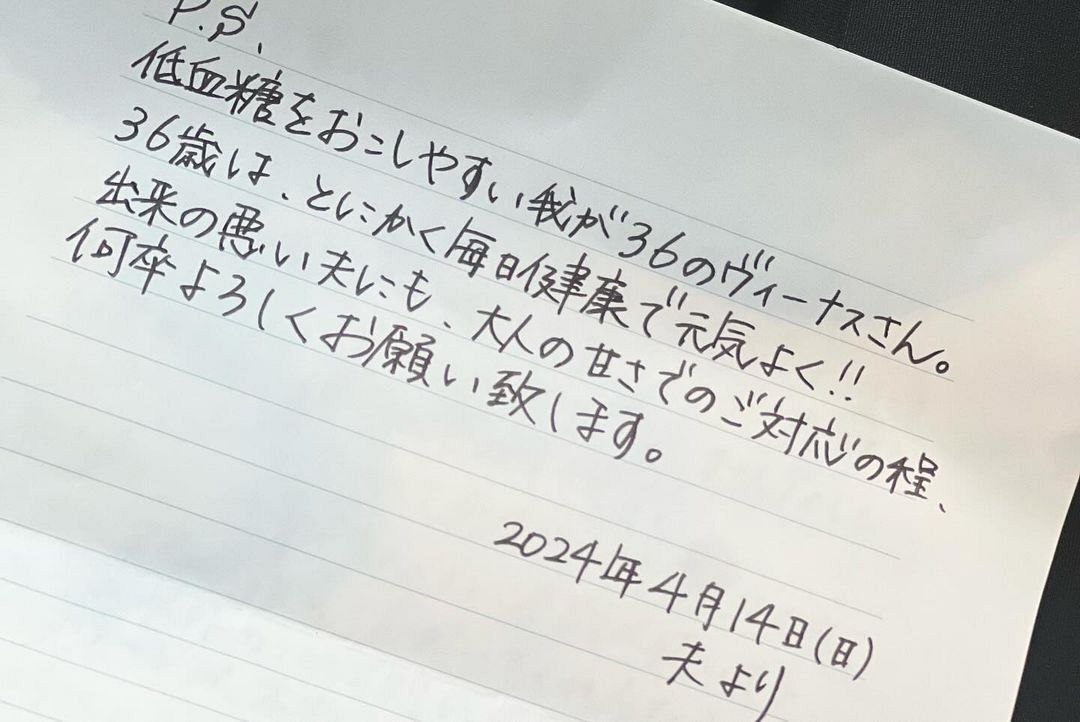 P.S.
低血糖をおこしやすい我が36のヴィーナスさん。
36歳は、とにかく毎日健康で元気よく!!
出来の悪い夫にも、大人の甘さでのご対応の程、
何卒よろしくお願い致します。
2024年4月14日(日)
夫より